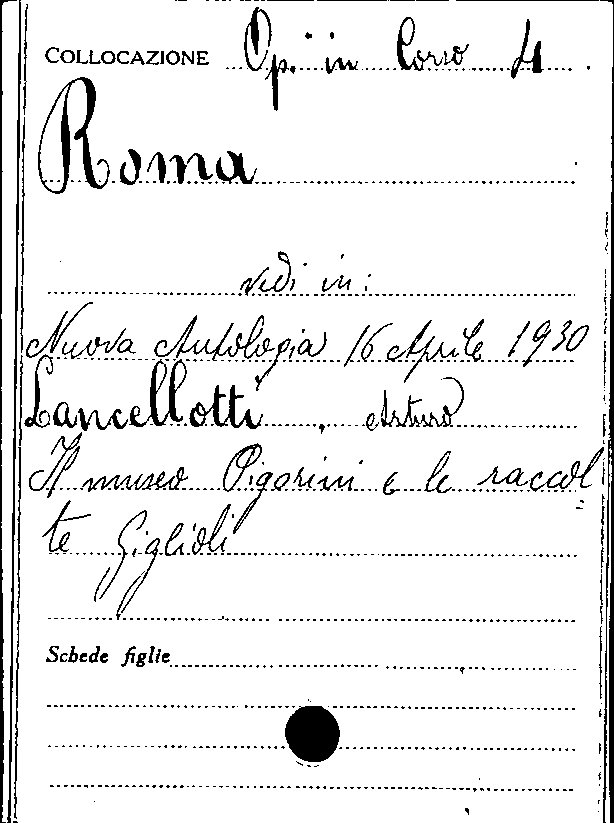 COLLOCAZIONE Op. in Corso 4
Roma
vedi in:
Nuova Antologia 16 Aprile 1930
Lancellotti, Arturo
Il museo Pigorini e le raccol=
te Giglioli
Schede figlie